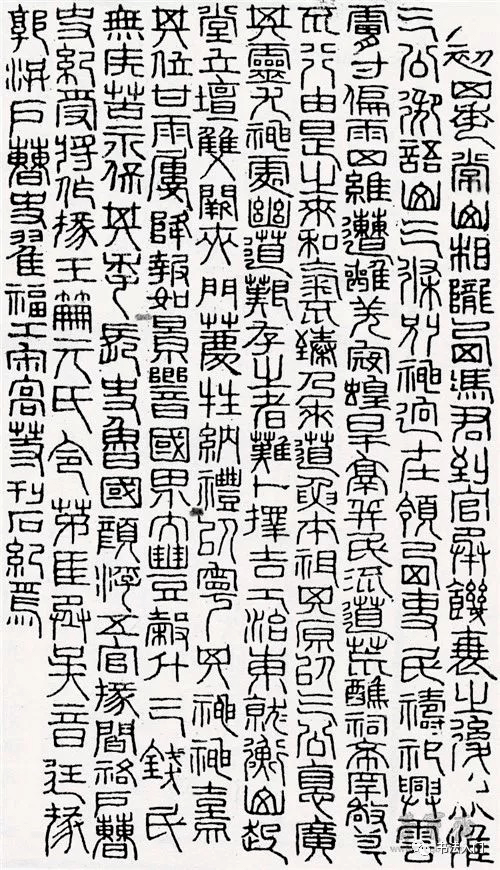 初四年常山相隴西馮君到官承饑衰之後惟
三公御語山三條別神迥在領西吏民禱祀興雲
膚寸偏雨四維遭離羌寇蝗旱鬲并民流道荒醮祠希罕敬奠
不行由是之來和氣不臻乃來道要本祖其原以三公悳廣
其靈尤神處幽道艱存之者難卜擇吉土治東就衡山起
堂立壇雙闕夾門薦牲納禮以寧其神神熹
其位甘雨屢降報如景響國界大豐穀斗三錢民
無疾苦永保其年長史魯國顏浮五官掾閻祐戶曹
史紀受將作掾王笧元氏令茅匡丞吳音廷掾
郭洪戶曹史翟福工宋高等刊石紀焉
书法入门